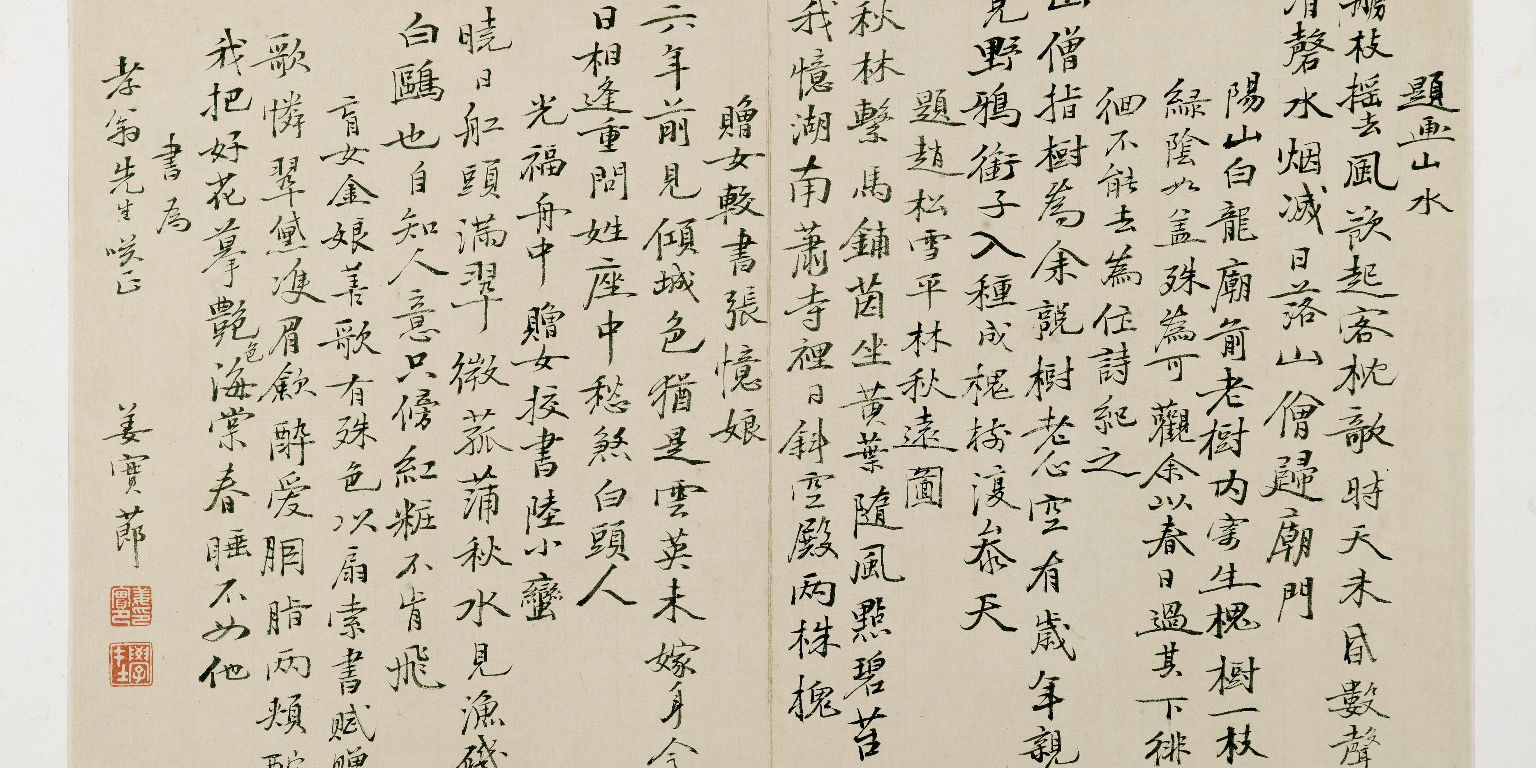 題画山水
枝摇去風欲起客枕欹時天未昏數聲
清磬水烟滅日落山僧歸廟門
陽山白龍廟前老樹内寄生槐樹一枝
緑陰如蓋殊為可觀余以春日過其下徘
徊不能去為住詩紀之
山僧指樹為余說樹老心空有歲年親
見野鴉銜子入種成槐樹復參天
題趙松雪平林秋遠圖
秋林繫馬鋪茵坐黃葉隨風點碧苔
我憶湖南蕭寺裡日斜空殿两株槐
贈女較書張憶娘
六年前見傾城色猶是雲英未嫁身今
日相逢重問姓座中愁煞白頭人
光福舟中贈女挍書陸小蠻
曉日舡頭滿翠微菰蒲秋水見漁磯
白鷗也自知人意只傍紅粧不肯飛
盲女金娘善歌有殊色以扇索書賦贈
歌憐翠黛凌眉歛醉愛胭脂两頰酡
我把好花摹艷色海棠春睡不如他
書為
孝翁先生咲正
姜實莭